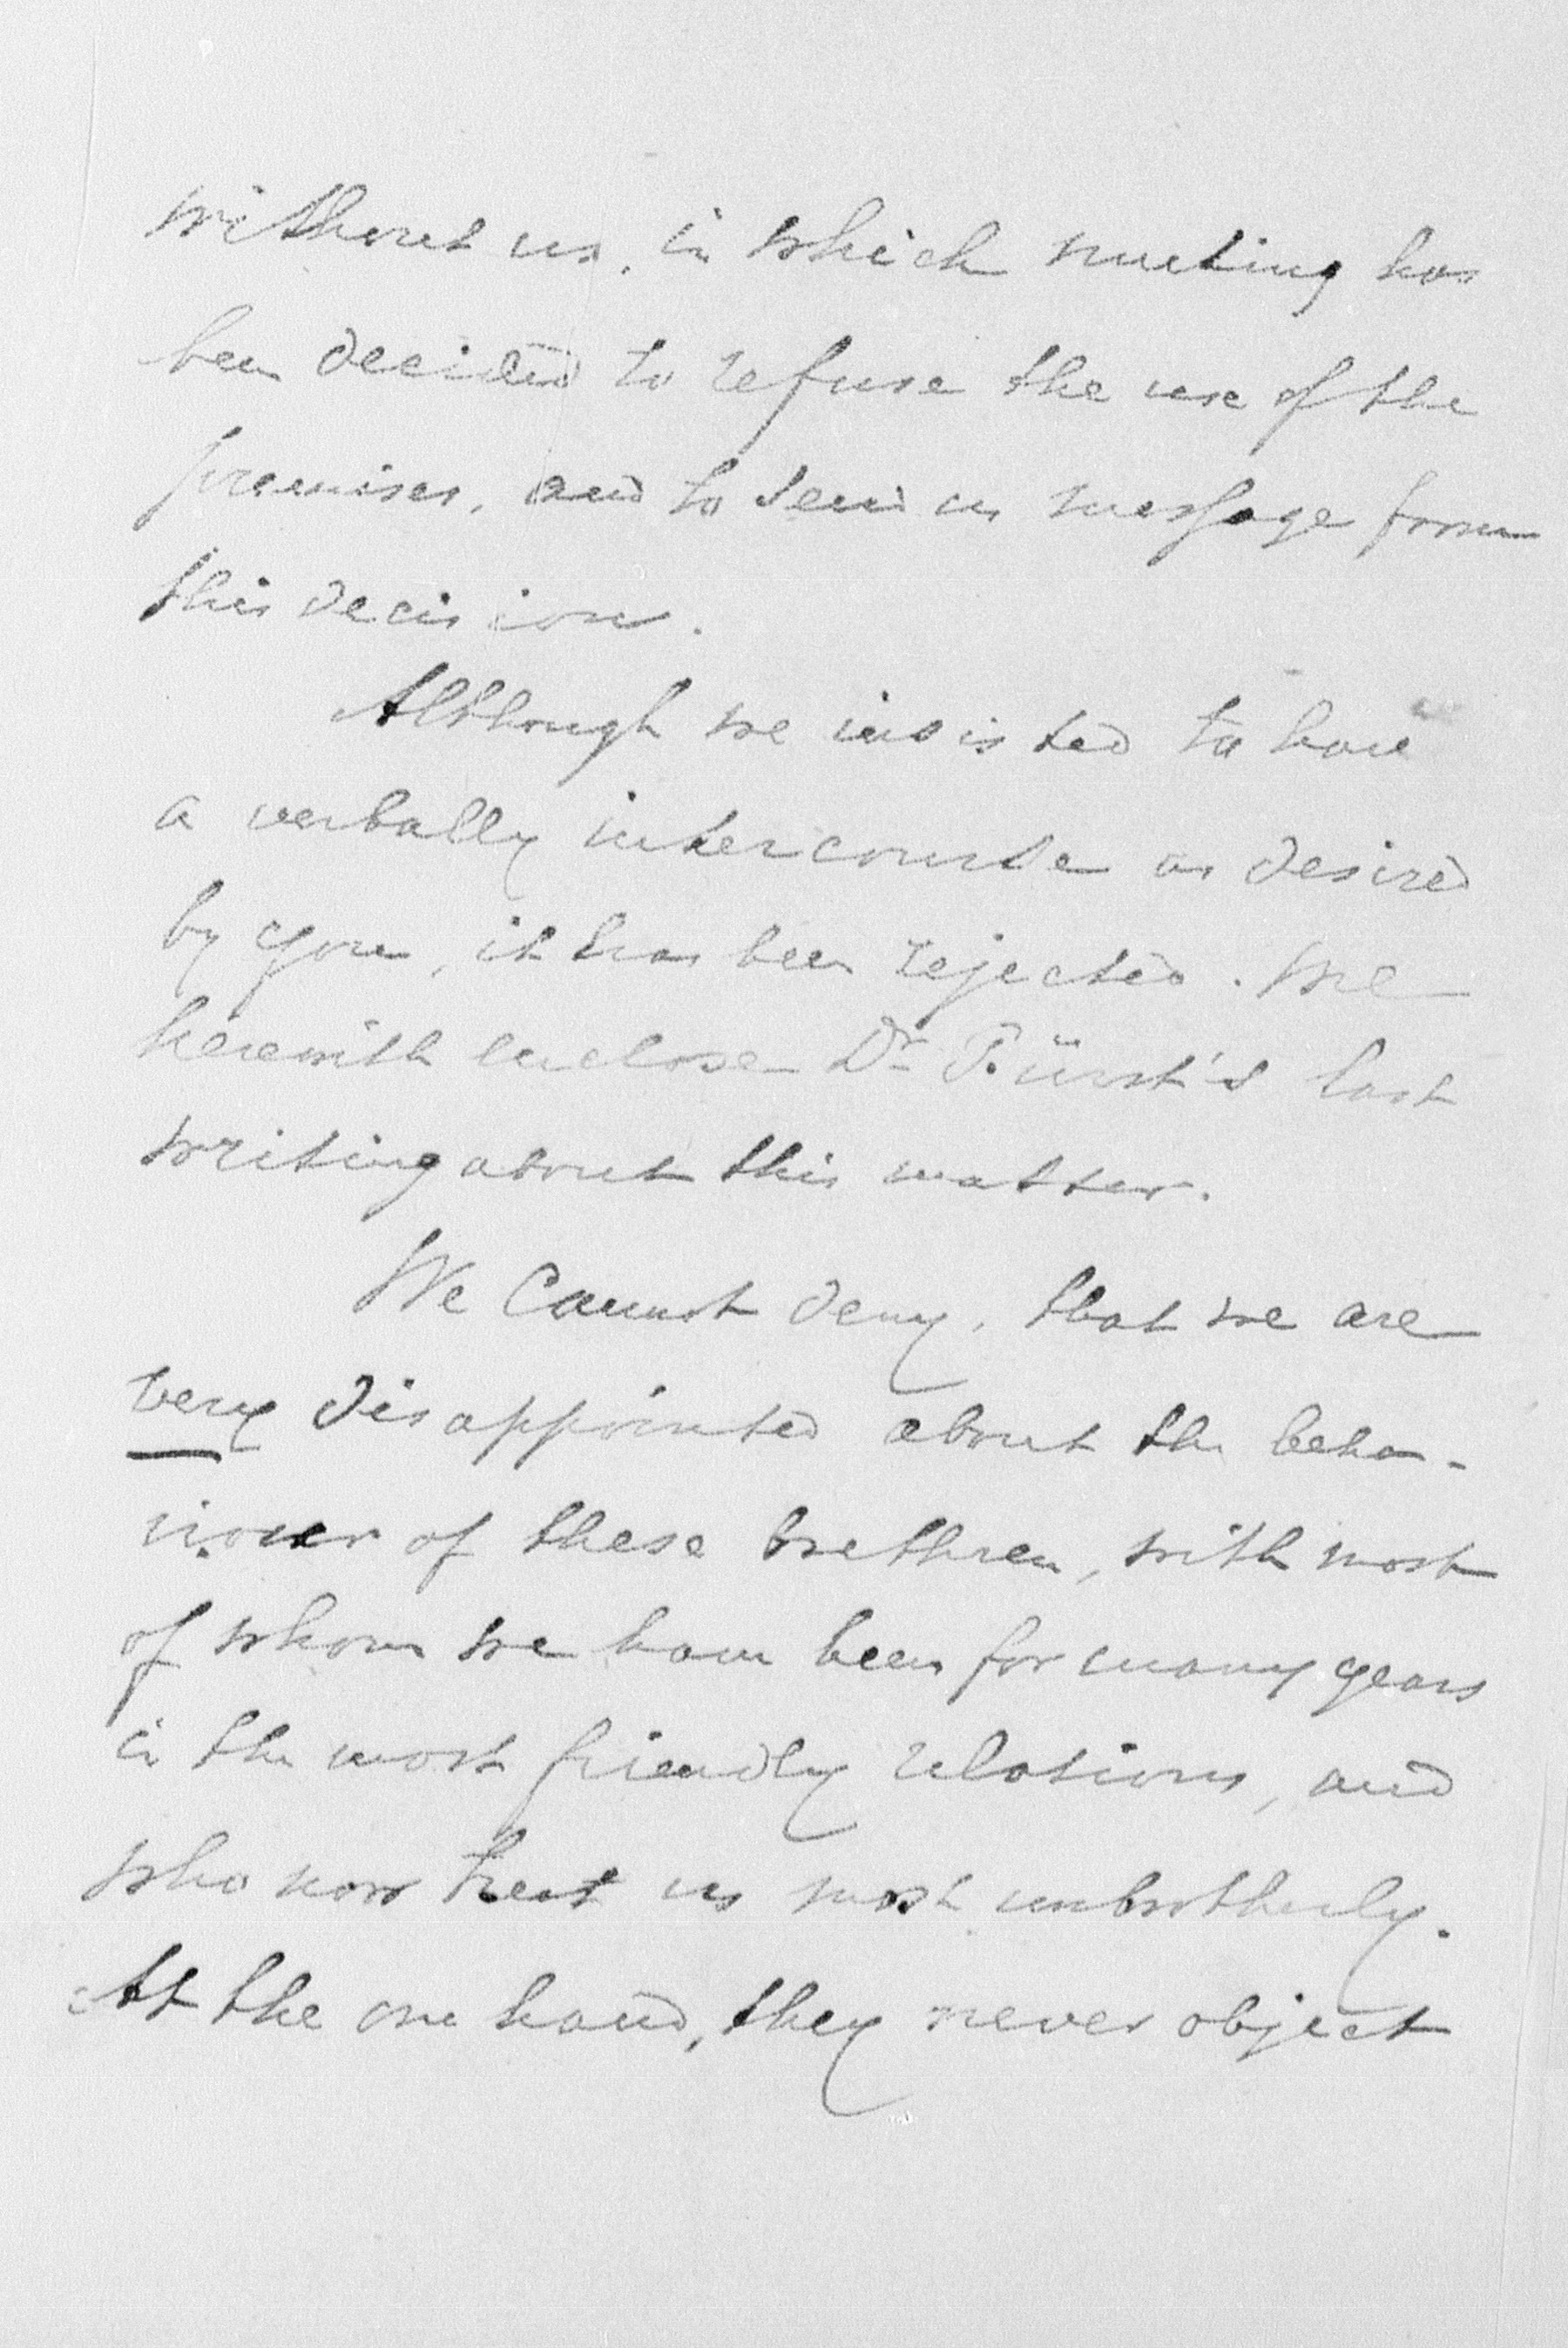 without us, in which meeting has
been decided to refuse the use of the
premises, and to send us message from
this decision.
Although we insisted to have
a verbally intercourse as desired
by you, it has been rejected. We
herewith enclose Dr Fürst's last
writing about this matter.
We Cannot deny, that we are
very disappointed about the beha-
viour of these brethren, with most
of whom we have been for many years
in the most friendly relations, and
who now treat us most unbrotherly.
At the one hand, they never object